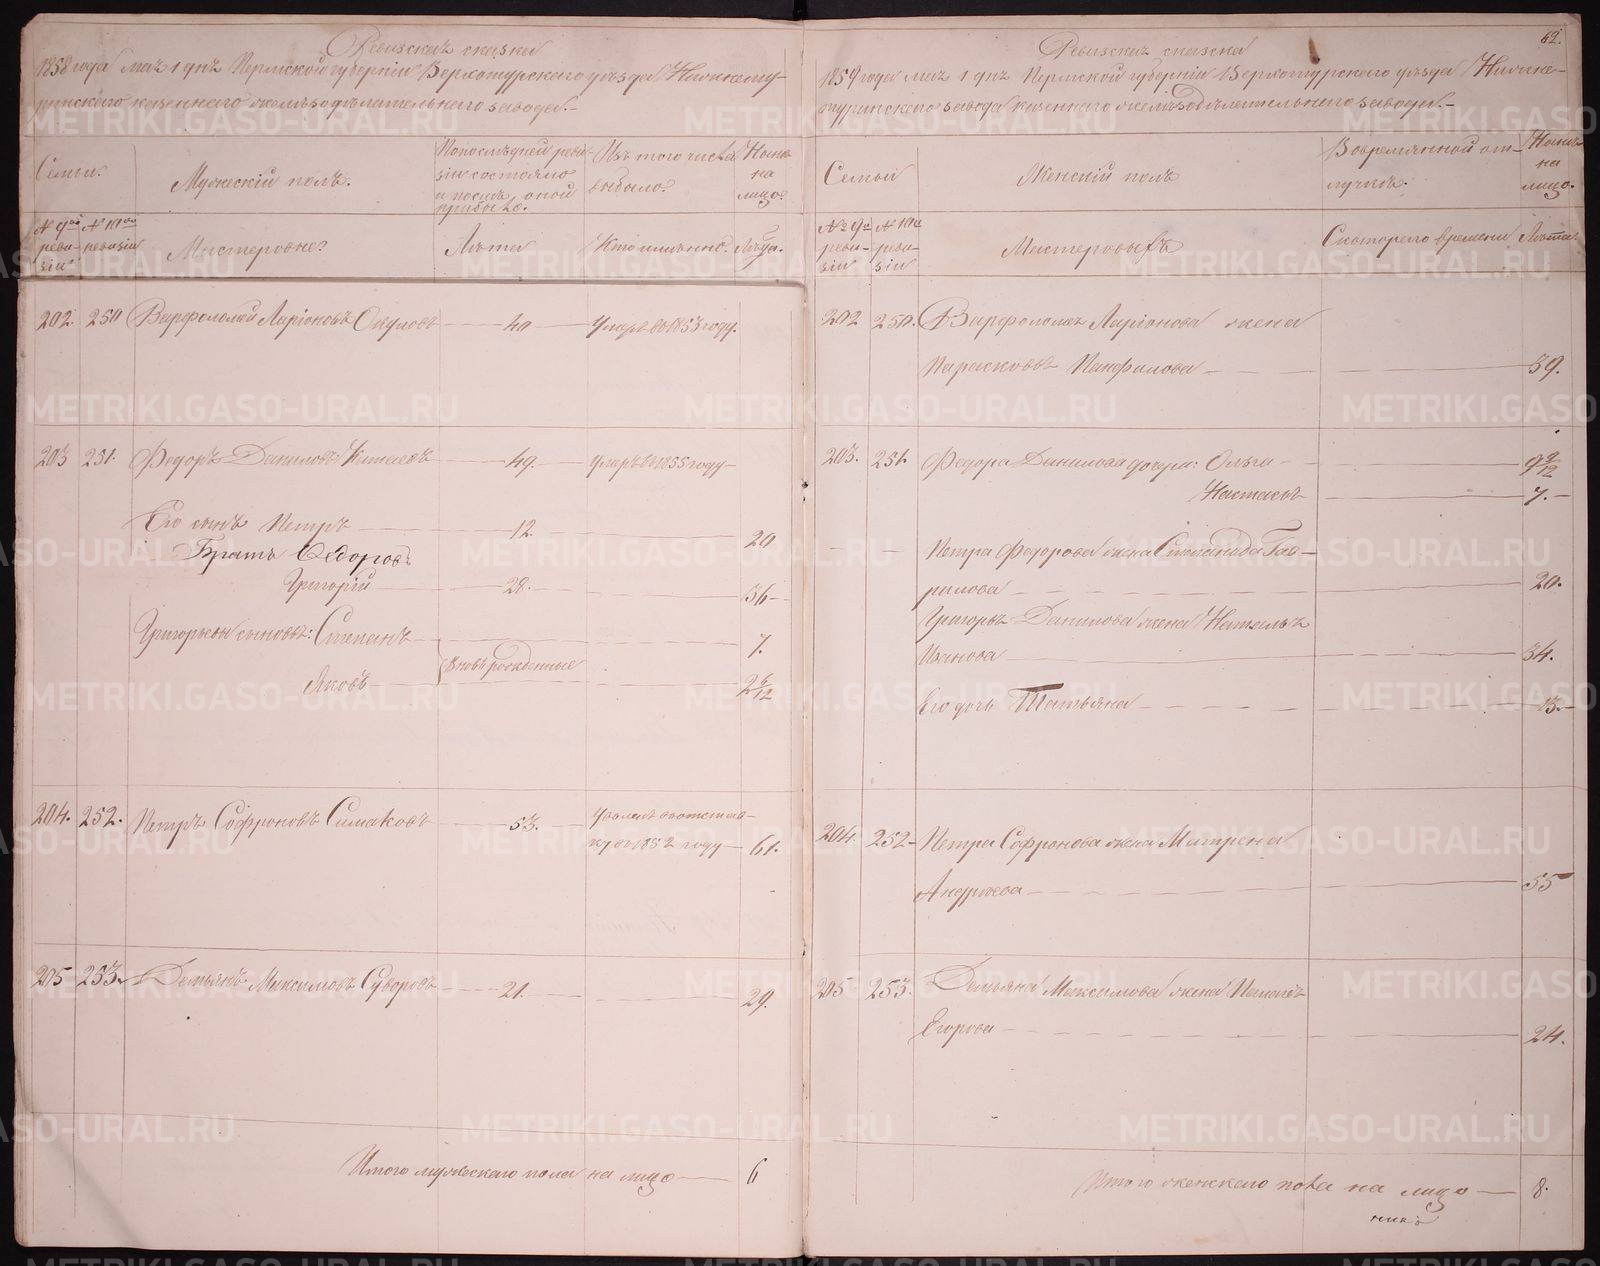 Ревизская сказка
1858 года мая 1 дня Пермской губерніи Верхотурского уѣзда Нижнету-
ринского казеннаго желѣзодѣлательнаго завода.
Семьи.
Мужескій полъ.
По послѣдней реви-
зіи состояло
и послѣ оной
прибыло.
Изъ того числа
выбыло?
Ныне
на
лицо?
№ 9ой
реви-
зіи
№ 10ой
ревизіи
Мастеровые?
Лѣта
Кто именно.
Лѣта.
202. 250 Варфоломей Ларіоновъ Окуловъ 40 Умеръ въ 1853 году.
203 251. Федоръ Даниловъ Китаевъ 49. умеръ въ 1855 году
Его сынъ Петръ 12. 20
Братъ Ѳедоровъ
Григорій 28. 36
Григорьевы сыновья: Степанъ 7.
Вновь рожденные
Яковъ 2 6/12
204. 252. Петръ Софроновъ Симаковъ 53. Уволенъ въ отстав-
ку въ 1852 году 61.
205 253. Демьянъ Максимовъ Суворовъ 21. 29.
Итого мужескаго пола на лицо 6
62.
Ревизская сказка
1859 года мая 1 дня Пермской губерніи Верхотурского уѣзда Нижне-
туринского завода казеннаго желѣзодѣлательнаго завода.
Семьи
Женскій полъ
Во временной от-
лучкѣ.
Ныне
на
лицо.
№ 9й
реви-
зіи
№ 10й
реви-
зіи
Мастеровыхъ
Съ котораго времени
Лѣта.
202 250. Варфоломея Ларіонова жена
Парасковья Панфилова 39.
203. 251. Федора Данилова дочери: Ольга 9 9/12
Настасья 7.
Петра Федорова жена Степанида Гав-
рилова 20.
Григорья Данилова жена Наталья
Иванова 34.
Его дочь Татьяна 13.
204. 252 Петра Софронова жена Матрена
Андреева 55
205 253. Демьяна Максимова жена Пелагея
Егорова 24.
Итого женскаго пола на лицо 8.
METRIKI.GASO-URAL.RU